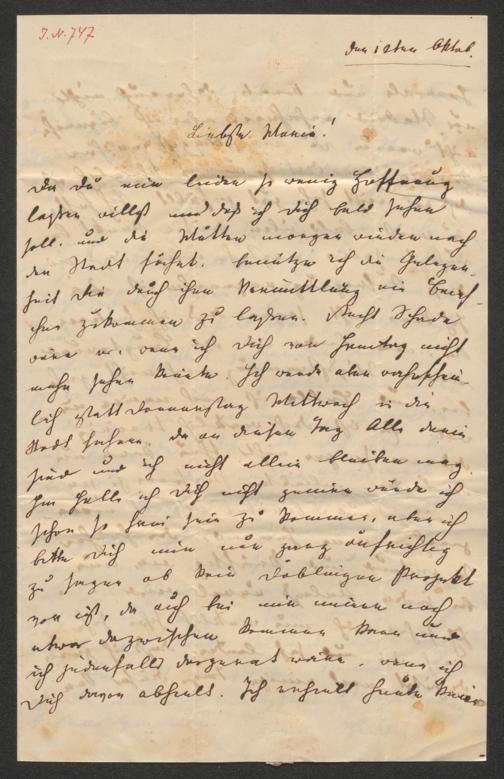 I.N. 747
den 12ten Oktob.
Liebste Marie!
Da Du mir leider so wenig Hoffnung
laßen willst und daß ich Dich bald sehen
soll. und die Mutter morgen wieder nach
der Stadt fährt. benütze ich die Gelegen-
heit Dir durch ihre Vermittlung ein Brief-
chen zukommen zu laßen. Recht Schade
wäre es, wenn ich Dich vor Samstag nicht
mehr sehen könnte. Ich werde aber wahrschein-
lich statt Donnerstag Mittwoch in die
Stadt fahren. da an diesem Tag Alle darin
sind und ich nicht allein bleiben mag.
Im Falle ich Dich nicht genire würde ich
schon so frei sein zu kommen, aber ich
bitte Dich mir nur ganz aufrichtig
zu sagen ob kein Döblinger Projekt
vor ist, da auch bei mir immer noch
etwas dazwischen kommen kann und
ich jedenfalls wäre. wenn ich
Dich davon abhielt. Ich erhielt heute